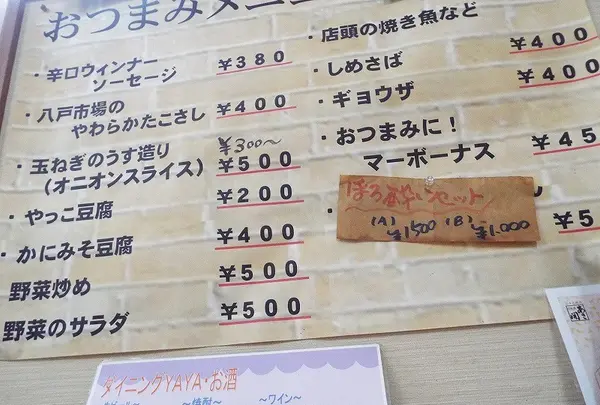 おつまみメニュー
・辛口ウィンナー
ソーセージ ¥380
・八戸市場の
やわらかたこさし ¥400
¥300～
・玉ねぎのうす造り
(オニオンスライス) ¥500
・やっこ豆腐 ¥200
・かにみそ豆腐 ¥400
野菜炒め ¥500
野菜のサラダ ¥500
・店頭の焼き魚など
・しめさば ¥400
・ギョウザ ¥400
・おつまみに!
マーボーナス ¥45
ほろ酔いセット
(A) ¥1500 (B) ¥1,000
¥5
ダイニングYAYA・お酒
～焼酎～ ～ワイン～